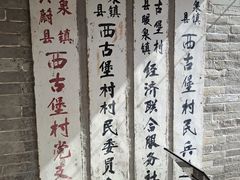 蔚县
泉镇
西古堡村党支
县
泉镇
西古堡村村民委员
县暖泉镇
古堡村
经济联合服务社
县
泉镇
西古堡村民兵